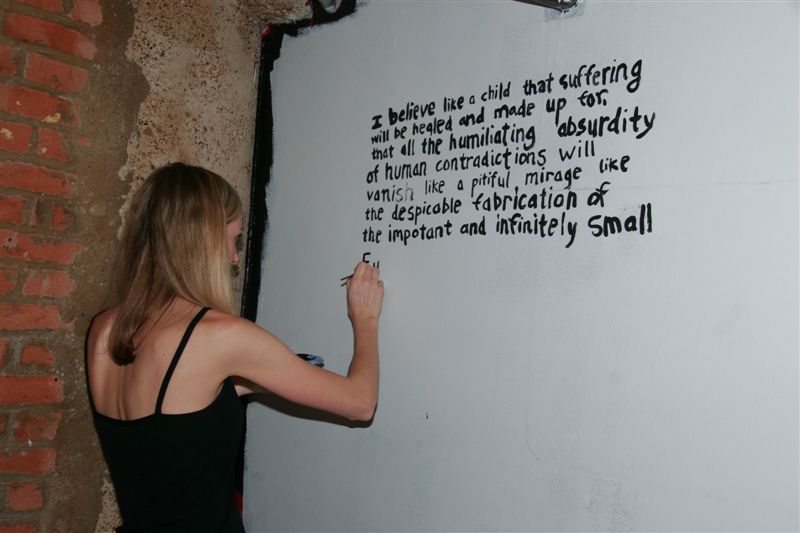 I believe like a child that suffering
will be healed and made up for,
that all the humiliating absurdity
of human contradictions will
vanish like a pitiful mirage like
the despicable fabrication of
the impotant and infinitely small
Eu